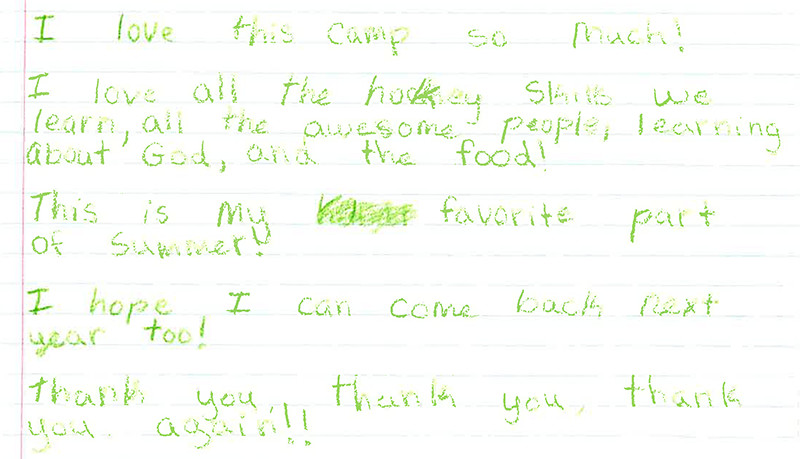 I love this camp so much!
I love all the hockey skills we
learn, all the awesome people, learning
about God, and the food!
This is my favorite part
of summer!
I hope I can come back next
year too!
Thank you, thank you, thank
you again!!